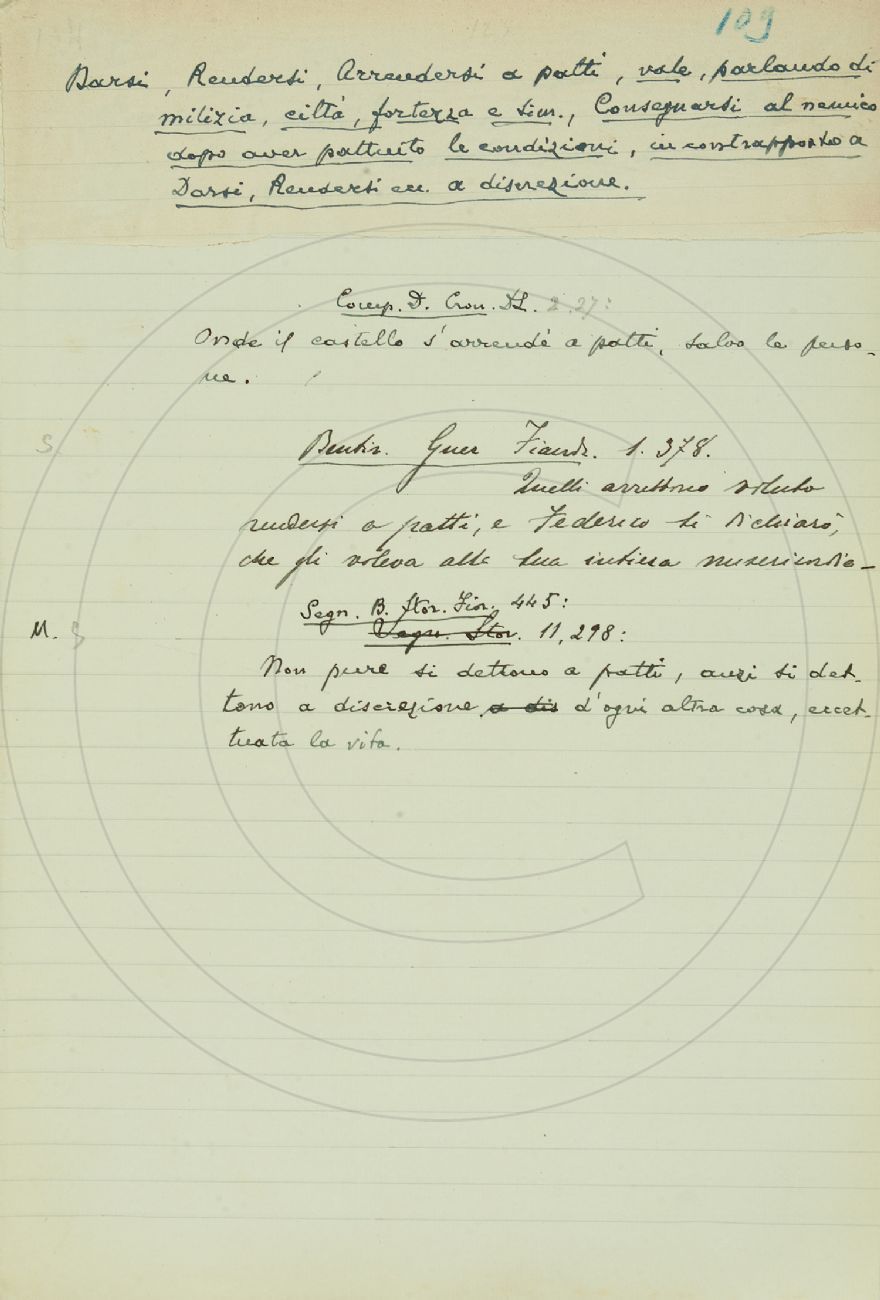 109
Darsi, Rendersi, Arrendersi a patti, vale, parlando di
milizia, città, fortezza e sim., Consegnarsi al nemico
dopo aver pattuito le condizioni, in contrapposto a
Darsi, Rendersi ec. a discrezione.
Comp. D. Cron. DL. 2.27:
Onde il castello s'arrendé a patti, salvo le perso-
ne.
S.
Bentiv. Guer Fiandr. 1. 378.
Quelli avrebbono voluto
rendersi a patti, e Federico si dichiarò,
che gli voleva alla sua intiera misericordia-
Segn. B. Stor. Fior. 445:
M. S
Segn. Stor. 11, 298:
Non pure si dettono a patti, anzi si det-
tono a discrezione a dis d'ogni altra cosa, eccet-
tuata la vita.